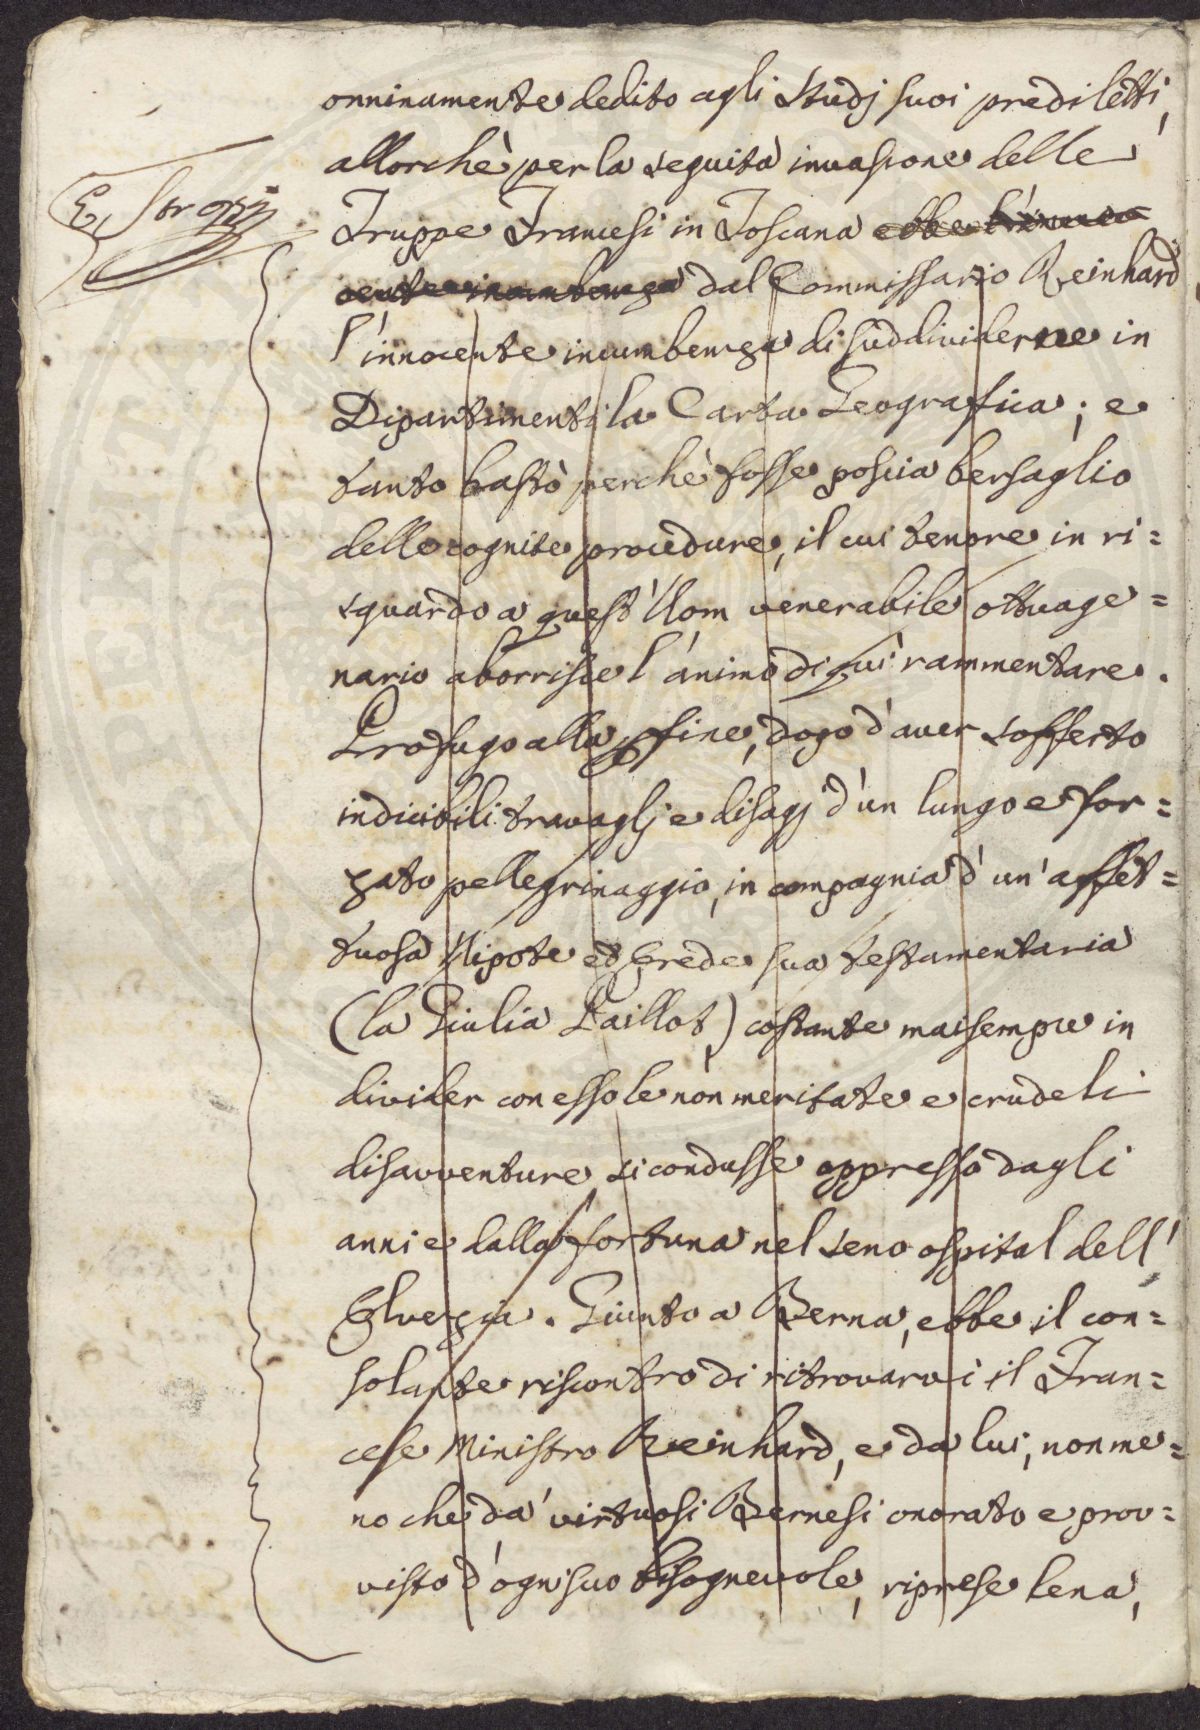 onninamente dedito agli Studj suoi prediletti,
allorchè per la seguita invasione delle
E. Strozzi
Truppe Francesi in Toscana ebbe l'inno
cente incumbenza dal Commissario Reinhard
l'innocente incumbenza di suddividerne in
Dipartimenti la Carta Geografica; e
tanto bastò perchè fosse poscia bersaglio
delle cognite procedure, il cui tenore in ri=
sguardo a quest'Uom venerabile ottuage=
nario aborrisce l'animo di quì rammentare.
Profugo alla fine, dopo d'aver sofferto
indicibili travaglj e disagj d'un lungo e for=
zato pellegrinaggio, in compagnia d'un'affet=
tuosa Nipote ed Erede sua testamentaria
(la Giulia Paillot,) costante maisempre in
divider con esso le non meritate e crudeli
disavventure si condusse oppresso dagli
anni e dalla fortuna nel seno ospital dell'
Elvezia. Giunto a Berna, ebbe il con=
solante riscontro di ritrovarvi il Fran=
cese Ministro Reinhard, e da lui, non me=
no che da' virtuosi Bernesi onorato e prov=
visto d'ogni suo bisognevole, riprese lena,